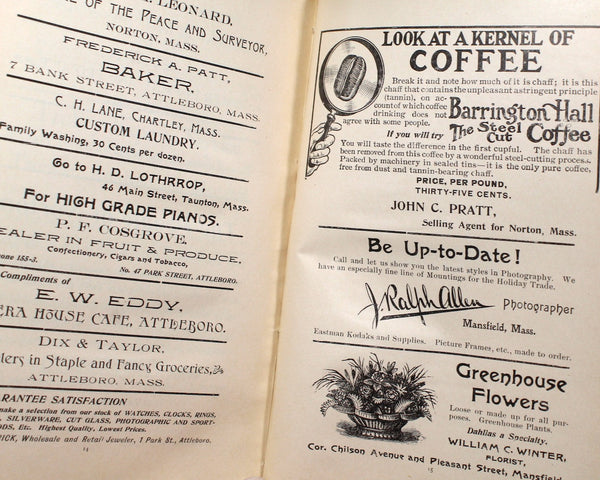 LEONARD.
OF THE PEACE AND SURVEYOR,
NORTON, MASS.
FREDERICK A. PATT,
BAKER,
7 BANK STREET, ATTLEBORO, MASS.
C. H. LANE, CHARTLEY, MASS.
CUSTOM LAUNDRY.
Family Washing, 30 Cents per dozen.
Go to H. D. LOTHRROP,
46 Main Street, Taunton, Mass.
For HIGH GRADE PIANOS.
P. F. COSGROVE,
DEALER IN FRUIT & PRODUCE,
Confectionery, Cigars and Tobacco,
155-3. No. 47 PARK STREET, ATTLEBORO.
Compliments of
E. W. EDDY,
HOUSE CAFE, ATTLEBORO.
DIX & TAYLOR,
in Staple and Fancy Groceries,
ATTLEBORO, MASS.
SATISFACTION
make a selection from our stock of WATCHES, CLOCKS, RINGS,
SILVERWARE, CUT GLASS, PHOTOGRAPHIC and SPORT-
Etc. Highest Quality, Lowest Prices.
Wholesale and Retail Jeweler, 1 Park St., Attleboro.
14
LOOK AT A KERNEL OF
COFFEE
Break it and note how much of it is chaff; it is this
chaff that contains the unpleasant astringent principle
(tannin), on ac-
count of which coffee
drinking does not
agree with some people.
Barrington Hall
If you will try The Steel Cut Coffee
You will taste the difference in the first cupful. The chaff has
been removed from this coffee by a wonderful steel-cutting process.
Packed by machinery in sealed tins—it is the only pure coffee,
free from dust and tannin-bearing chaff.
PRICE, PER POUND,
THIRTY-FIVE CENTS.
JOHN C. PRATT,
Selling Agent for Norton, Mass.
Be Up-to-Date!
Call and let us show you the latest styles in Photography. We
have an especially fine line of Mountings for the Holiday Trade.
J. Ralph Allen Photographer
Mansfield, Mass.
Eastman Kodaks and Supplies. Picture Frames, etc., made to order.
Greenhouse
Flowers
Loose or made up for all pur-
poses. Greenhouse Plants.
Dahlias a Specialty.
WILLIAM C. WINTER,
FLORIST,
Cor. Chilson Avenue and Pleasant Street, Mansfield
15